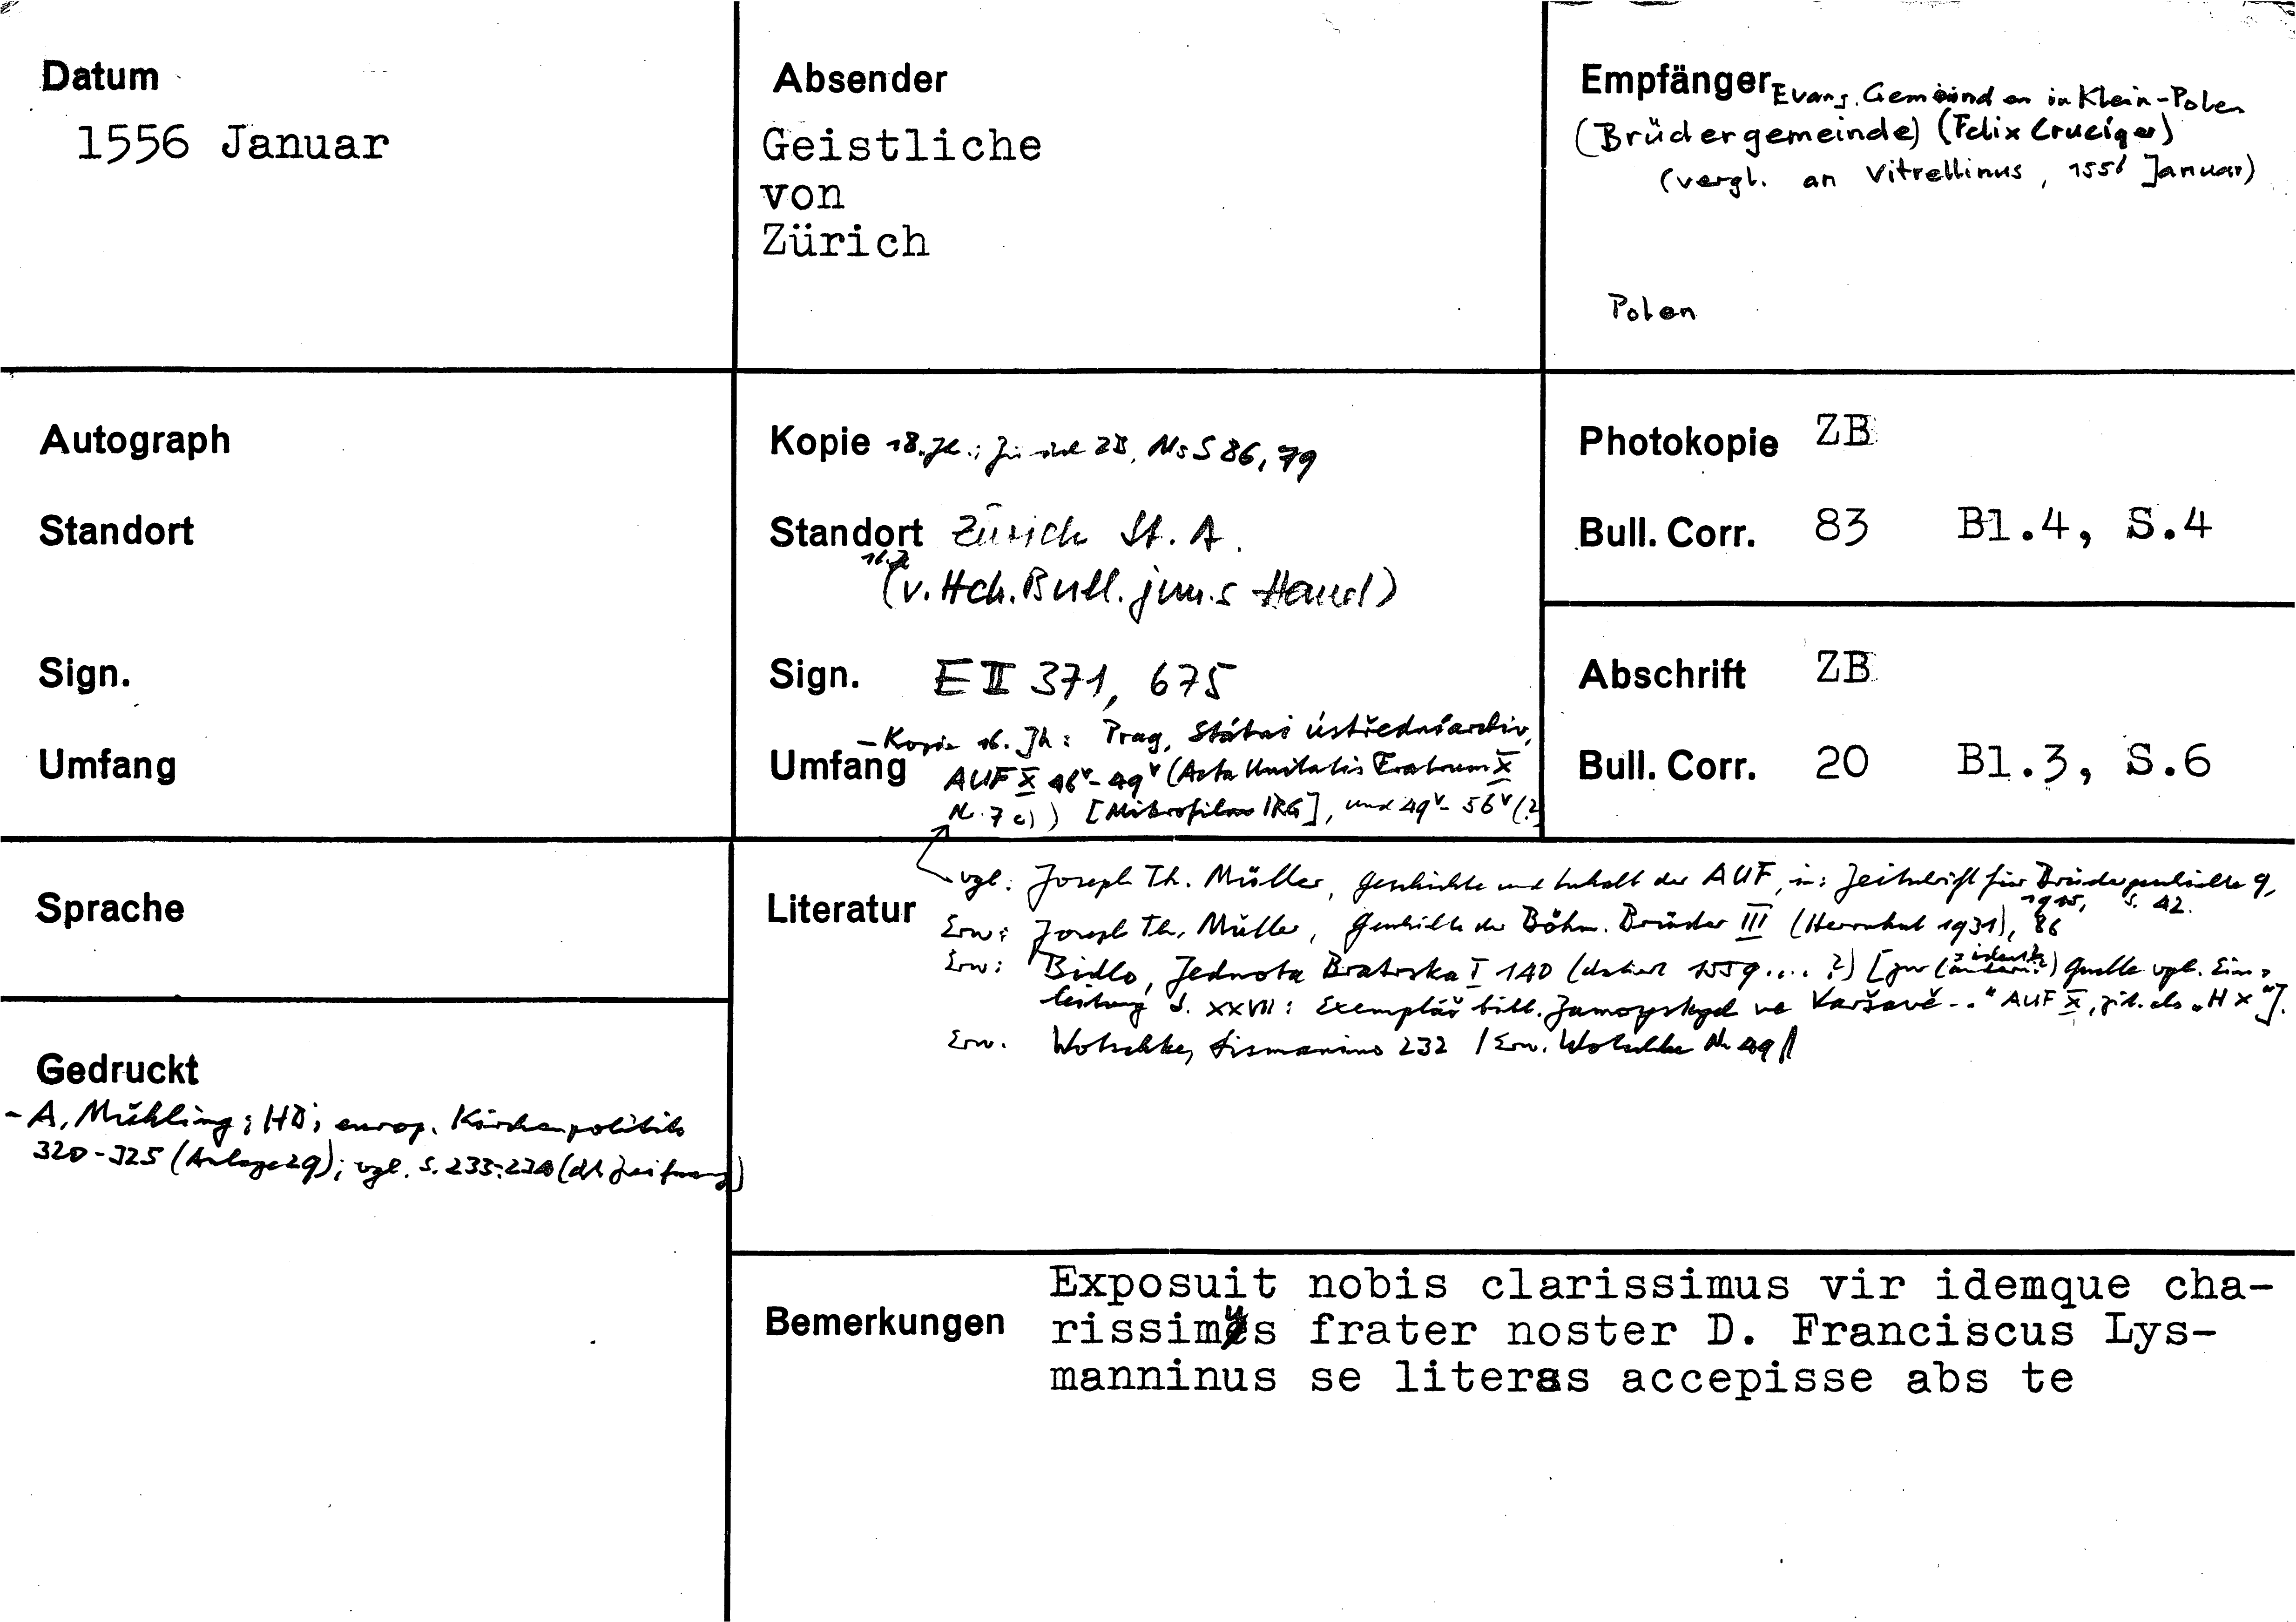 Datum
1556 Januar
Absender
Geistliche
von
Zürich
Empfänger Evang. Gemeinden in Klein-Polen
(Brüdergemeinde) (Felix Cruciger)
(vergl. an Vitrellinus, 1556 Januar)
Polen
Autograph
Standort
Sign.
Umfang
Kopie 18. Jh.: Zürich ZB, Ms S 86, 79
Standort Zürich St. A.
16. Jh
(v. Hch. Bull. jun.s Hand)
Sign. E II 371, 675
– Kopie 16. Jh: Prag, Státní ústřední archiv,
Umfang AUF X 46v-49v (Acta Unitatis Fratrum X
Nr. 7 c)) [Mikrofilm IRG], und 49v- 56v (?)
Photokopie ZB
Bull. Corr. 83 Bl.4, S.4
Abschrift ZB
Bull. Corr. 20 Bl.3, S.6
Sprache
Gedruckt
- A. Mühling; HB; europ. Kirchenpolitik
320-325 (Anlage 29); vgl. S. 233-234
Literatur
vgl. Joseph Th. Müller, Geschichte und Inhalt der AUF, in: Zeitschrift für Brüdergeschichte 9,
1915, S. 42.
Erw: Joseph Th. Müller, Geschichte der Böhm. Brüder III (Herrnhut 1931), 86
Erw: Bidlo, Jednota Bratrska I 140 (datiert 1559....?) [zur Quelle vgl. Ein-
leitung S. XXVII: Exemplář bibl. Zamoyských ve Varšavě.." AUF X, zit. als „H X"].
Erw. Wotschke, Lismanino 232 / Erw. Wotschke Nr. 49
Bemerkungen
Exposuit nobis clarissimus vir idemque cha-
rissimus frater noster D. Franciscus Lys-
manninus se literas accepisse abs te